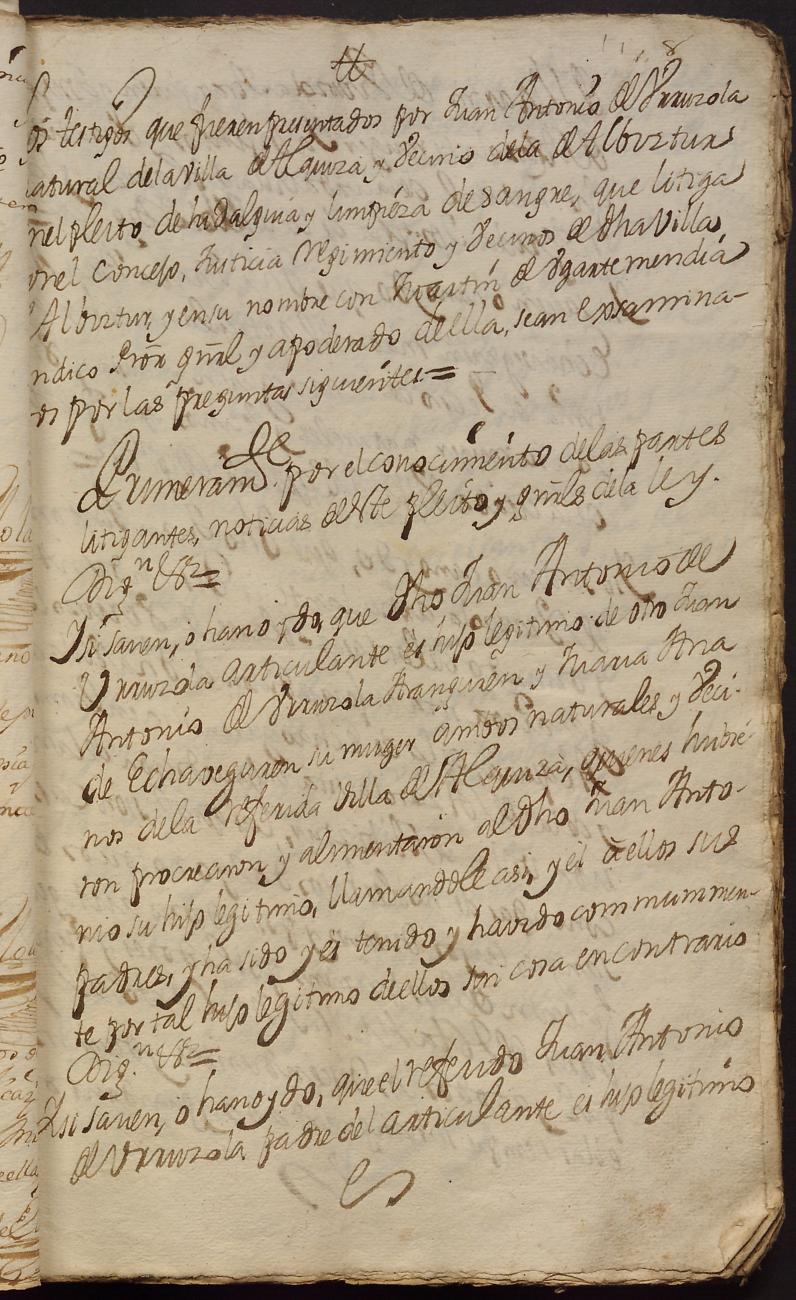 8
os testigos que fueren presentados por Juan Antonio de Vrruzola
natural de la villa de Alquiza, y vecino dela de Albiztur
nel pleito de hidalguia y limpieza de sangre, que litiga
onel Concejo, Justicia regimiento y vecinos de dha villa
Albiztur, y en su nombre con de Vgartemendia
ndico Prõr gñral y apoderado de ella, sean Examina-
os por las preguntas siguientes =
Primeramte por el conocimiento de las partes
litigantes, noticias de este pleito y gñrles dela ley.
Dign &a =
Y si saven, o han oydo, que dho Juan Antonio de
Vrruzola articulante es hijo legitimo de otro Juan
Antonio de Vrruzola Aranguren y Maria Ana
de Echaveguren su muger ambos naturales y veci-
nos dela referida villa de Alquiza, quienes hubie-
ron procrearon y alimentaron al dho Juan Anto-
nio su hijo legitimo, llamandole asi, y el a ellos sus
padres, y ha sido y es tenido y havido commummen-
te por tal hijo legitimo de ellos sin cosa en contrario
Dign &a =
Y si saven, o han oydo, que el referido Juan Antonio
de Vrruzola padre del articulante es hijo legitimo